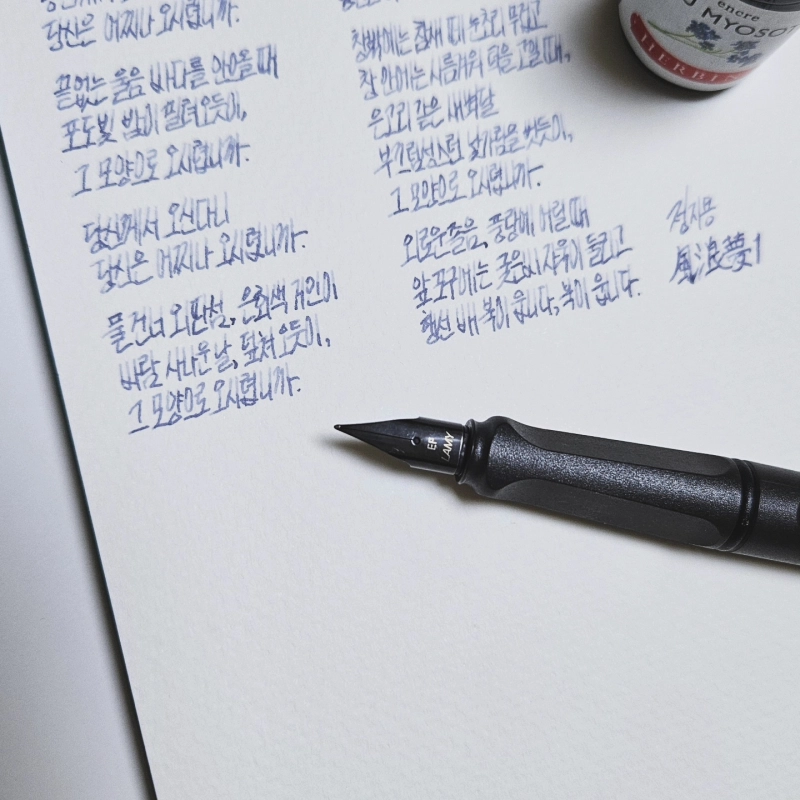 당신은 어찌나 오시렵니까.
끝없는 울음 바다를 안으올 때
포도빛 밤이 밀려오듯이,
그 모양으로 오시렵니까.
당신께서 오신다니
당신은 어찌나 오시렵니까.
물 건너 외딴 섬, 은회색 거인이
바람 사나운 날, 덮쳐 오듯이,
그 모양으로 오시렵니까.
창밖에는 참새 떼 눈초리 무겁고
창 안에는 시름겨워 턱을 고일 때,
은고리 같은 새벽달
부끄럼성스런 낯가림을 벗듯이,
그 모양으로 오시렵니까.
외로운 졸음, 풍랑에 어릴 때
앞 포구에는 궂은비 자욱이 둘리고
행선 배 북이 웁니다, 북이 웁니다.
정지용
風浪夢1
encre
MYOSO
HERBIN
EF
LAMY